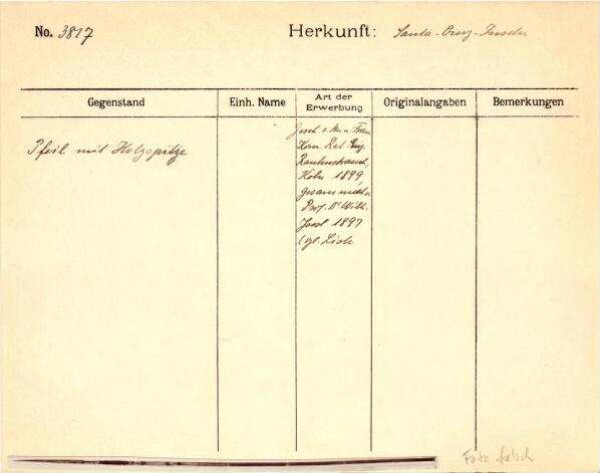 No. 3817
Herkunft: Santa-Cruz-Inseln
Gegenstand
Einh. Name
Art der Erwerbung
Originalangaben
Bemerkungen
Pfeil mit Holzspitze
Gesch. v. Hrn. u. Frau
Kom. Rat Eug.
Rautenstrauch,
Köln 1899,
Prof. Dr. Wilh.
Joest 1897
vgl. Liste
Foto falsch